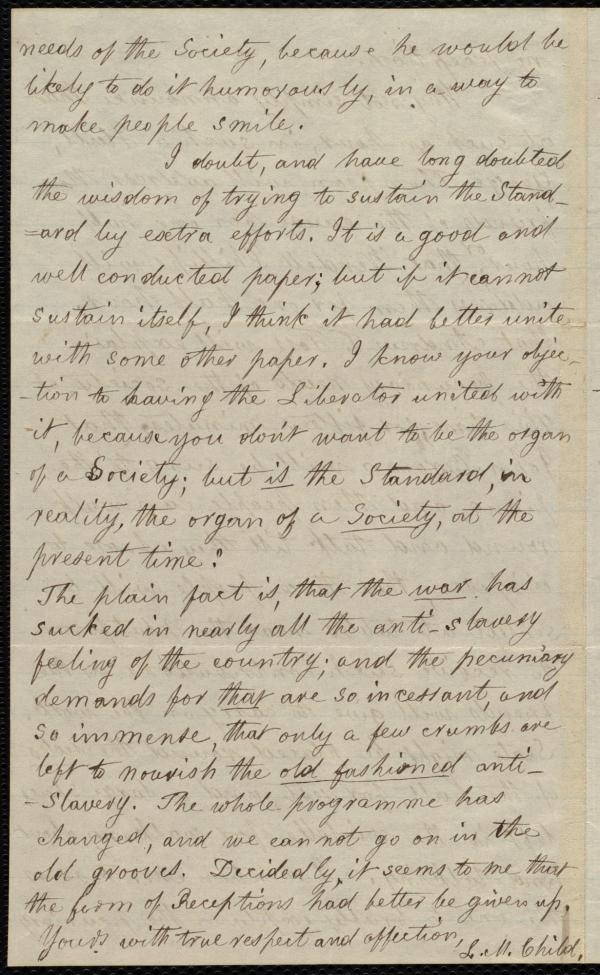 needs of the Society, because he would be
likely to do it humorously, in a way to
make people smile.
I doubt, and have long doubted
the wisdom of trying to sustain the Stand-
=ard by extra efforts. It is a good and
well conducted paper; but if it cannot
sustain itself, I think it had better unite
with some other paper. I know your objec-
-tion to having the Liberator united with
it, because you don't want to be the organ
of a Society; but is the Standard, in
reality, the organ of a Society, at the
present time?
The plain fact is, that the war has
sucked in nearly all the anti-slavery
feeling of the country; and the pecuniary
demands for that are so incessant, and
so immense, that only a few crumbs are
left to nourish the old fashioned anti-
-Slavery. The whole programme has
changed, and we cannot go on in the
old grooves. Decidedly, it seems to me that
the form of Receptions had better be given up.
Yours with true respect and affection,
L. M. Child.